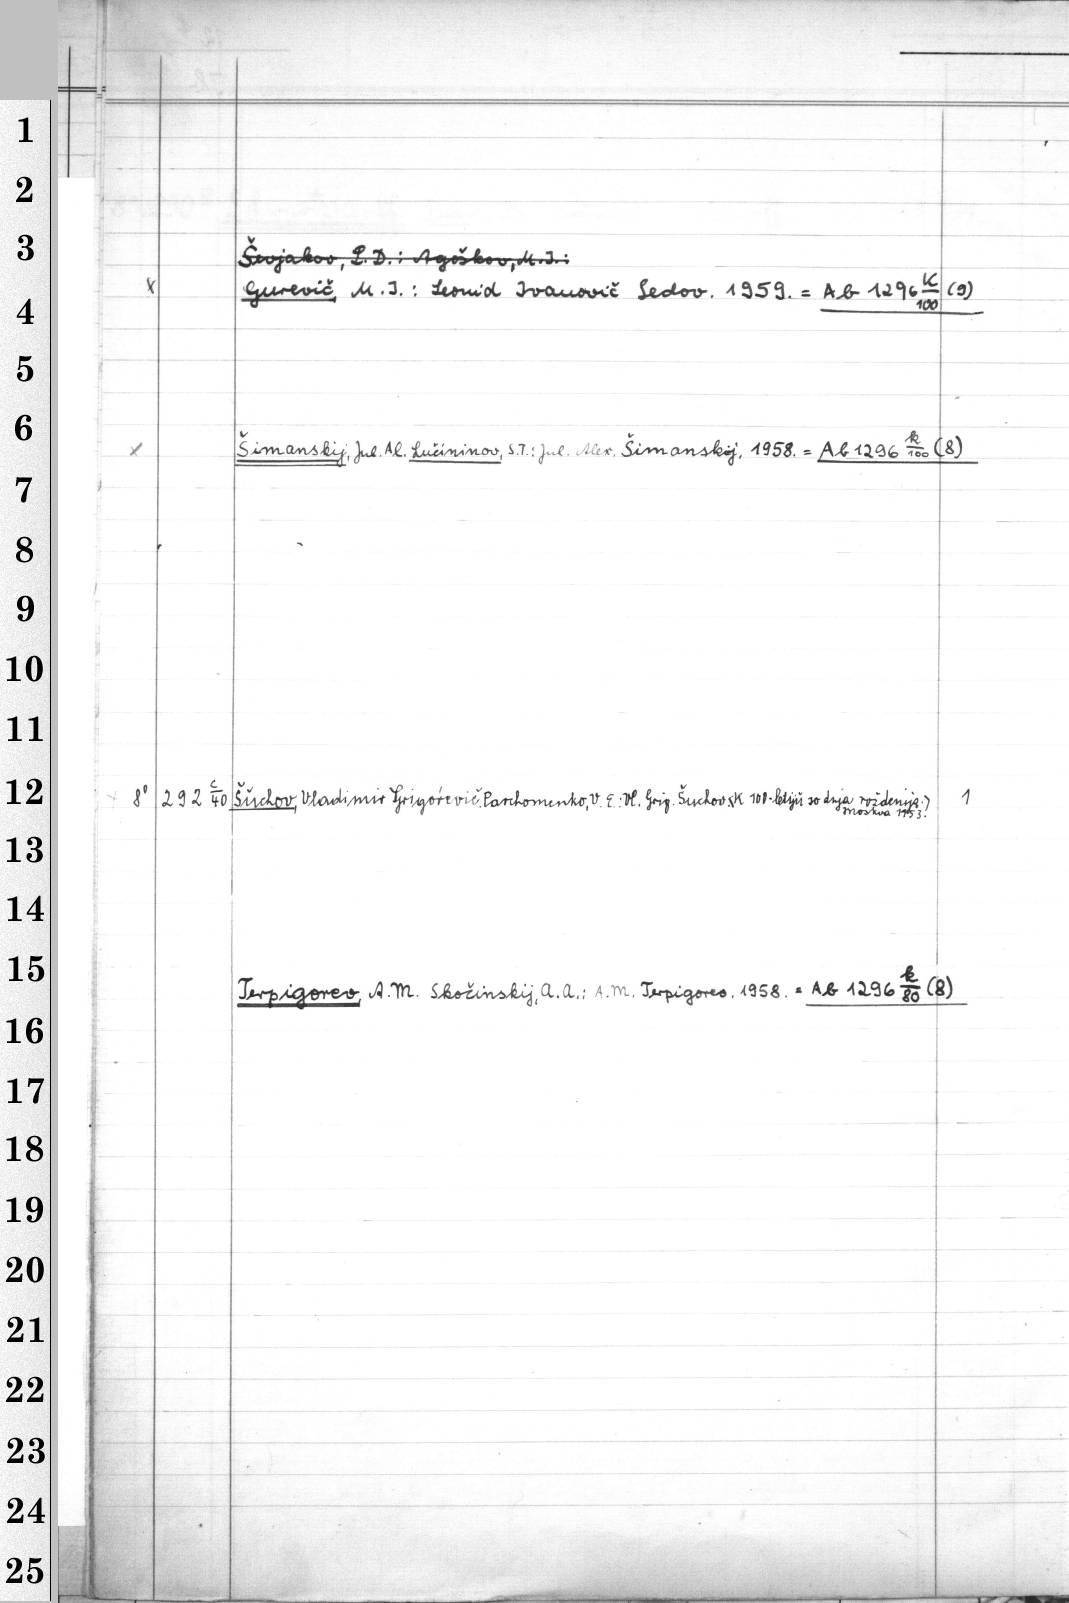 1
2
3
Ševjakov, L.D.: Agoškov, M.I.:
x Gurevič, M.I.: Leonid Ivanovič Sedov. 1959. = Ab 1296 K/100 (9)
4
5
6
x Šimanskij, Jul. Al. Lučininov, S.T.: Jul. Alex. Šimanskij, 1958. = Ab 1296 k/100 (8)
7
8
9
10
11
12 8° 292 c/40 Šuchov, Vladimir Grigórevič. Parchomenko, V. E.: Vl. Grig. Šuchov. (K 100-letiju so dnja roždenija.) 1
Moskva 1953.
13
14
15
Terpigorev, A.M. Skočinskij, A.A.: A.M. Terpigorev. 1958. = Ab 1296 k/80 (8)
16
17
18
19
20
21
22
23
24
25